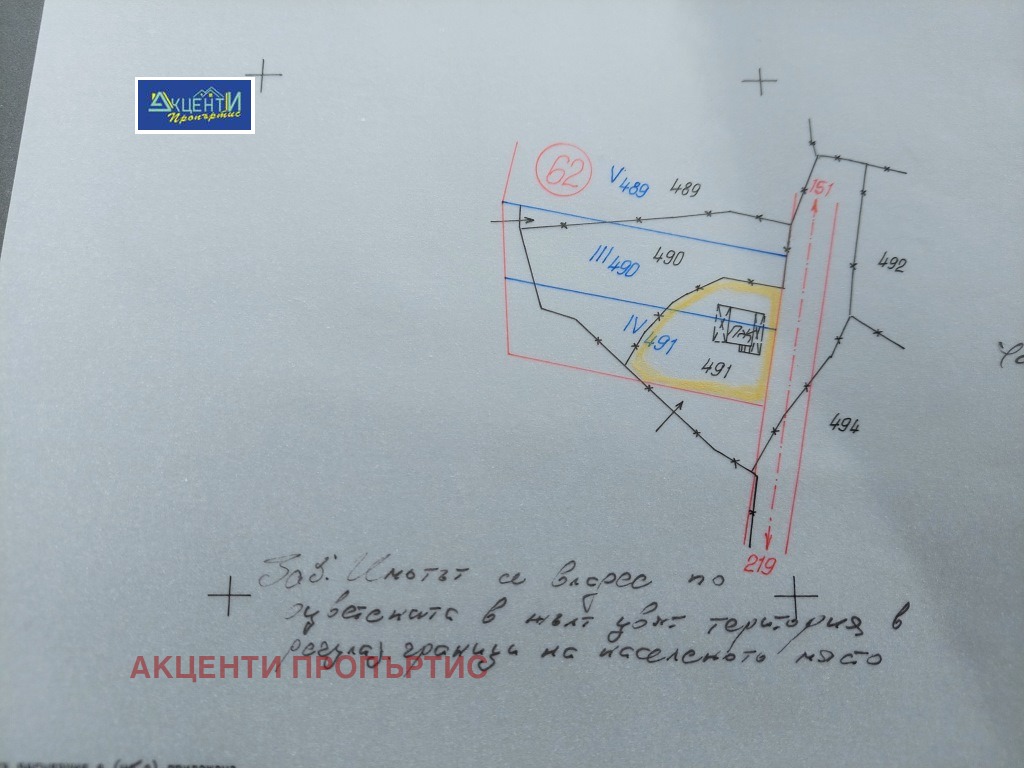 АКЦЕНТИ
Пропъртис
62
V 489
489
151
III 490
490
492
IV 491
ПЖ
491
494
219
Заб. Имотът се владее по
оцветената в жълт цвят територия в
регулац. граници на населеното място
АКЦЕНТИ ПРОПЪРТИС